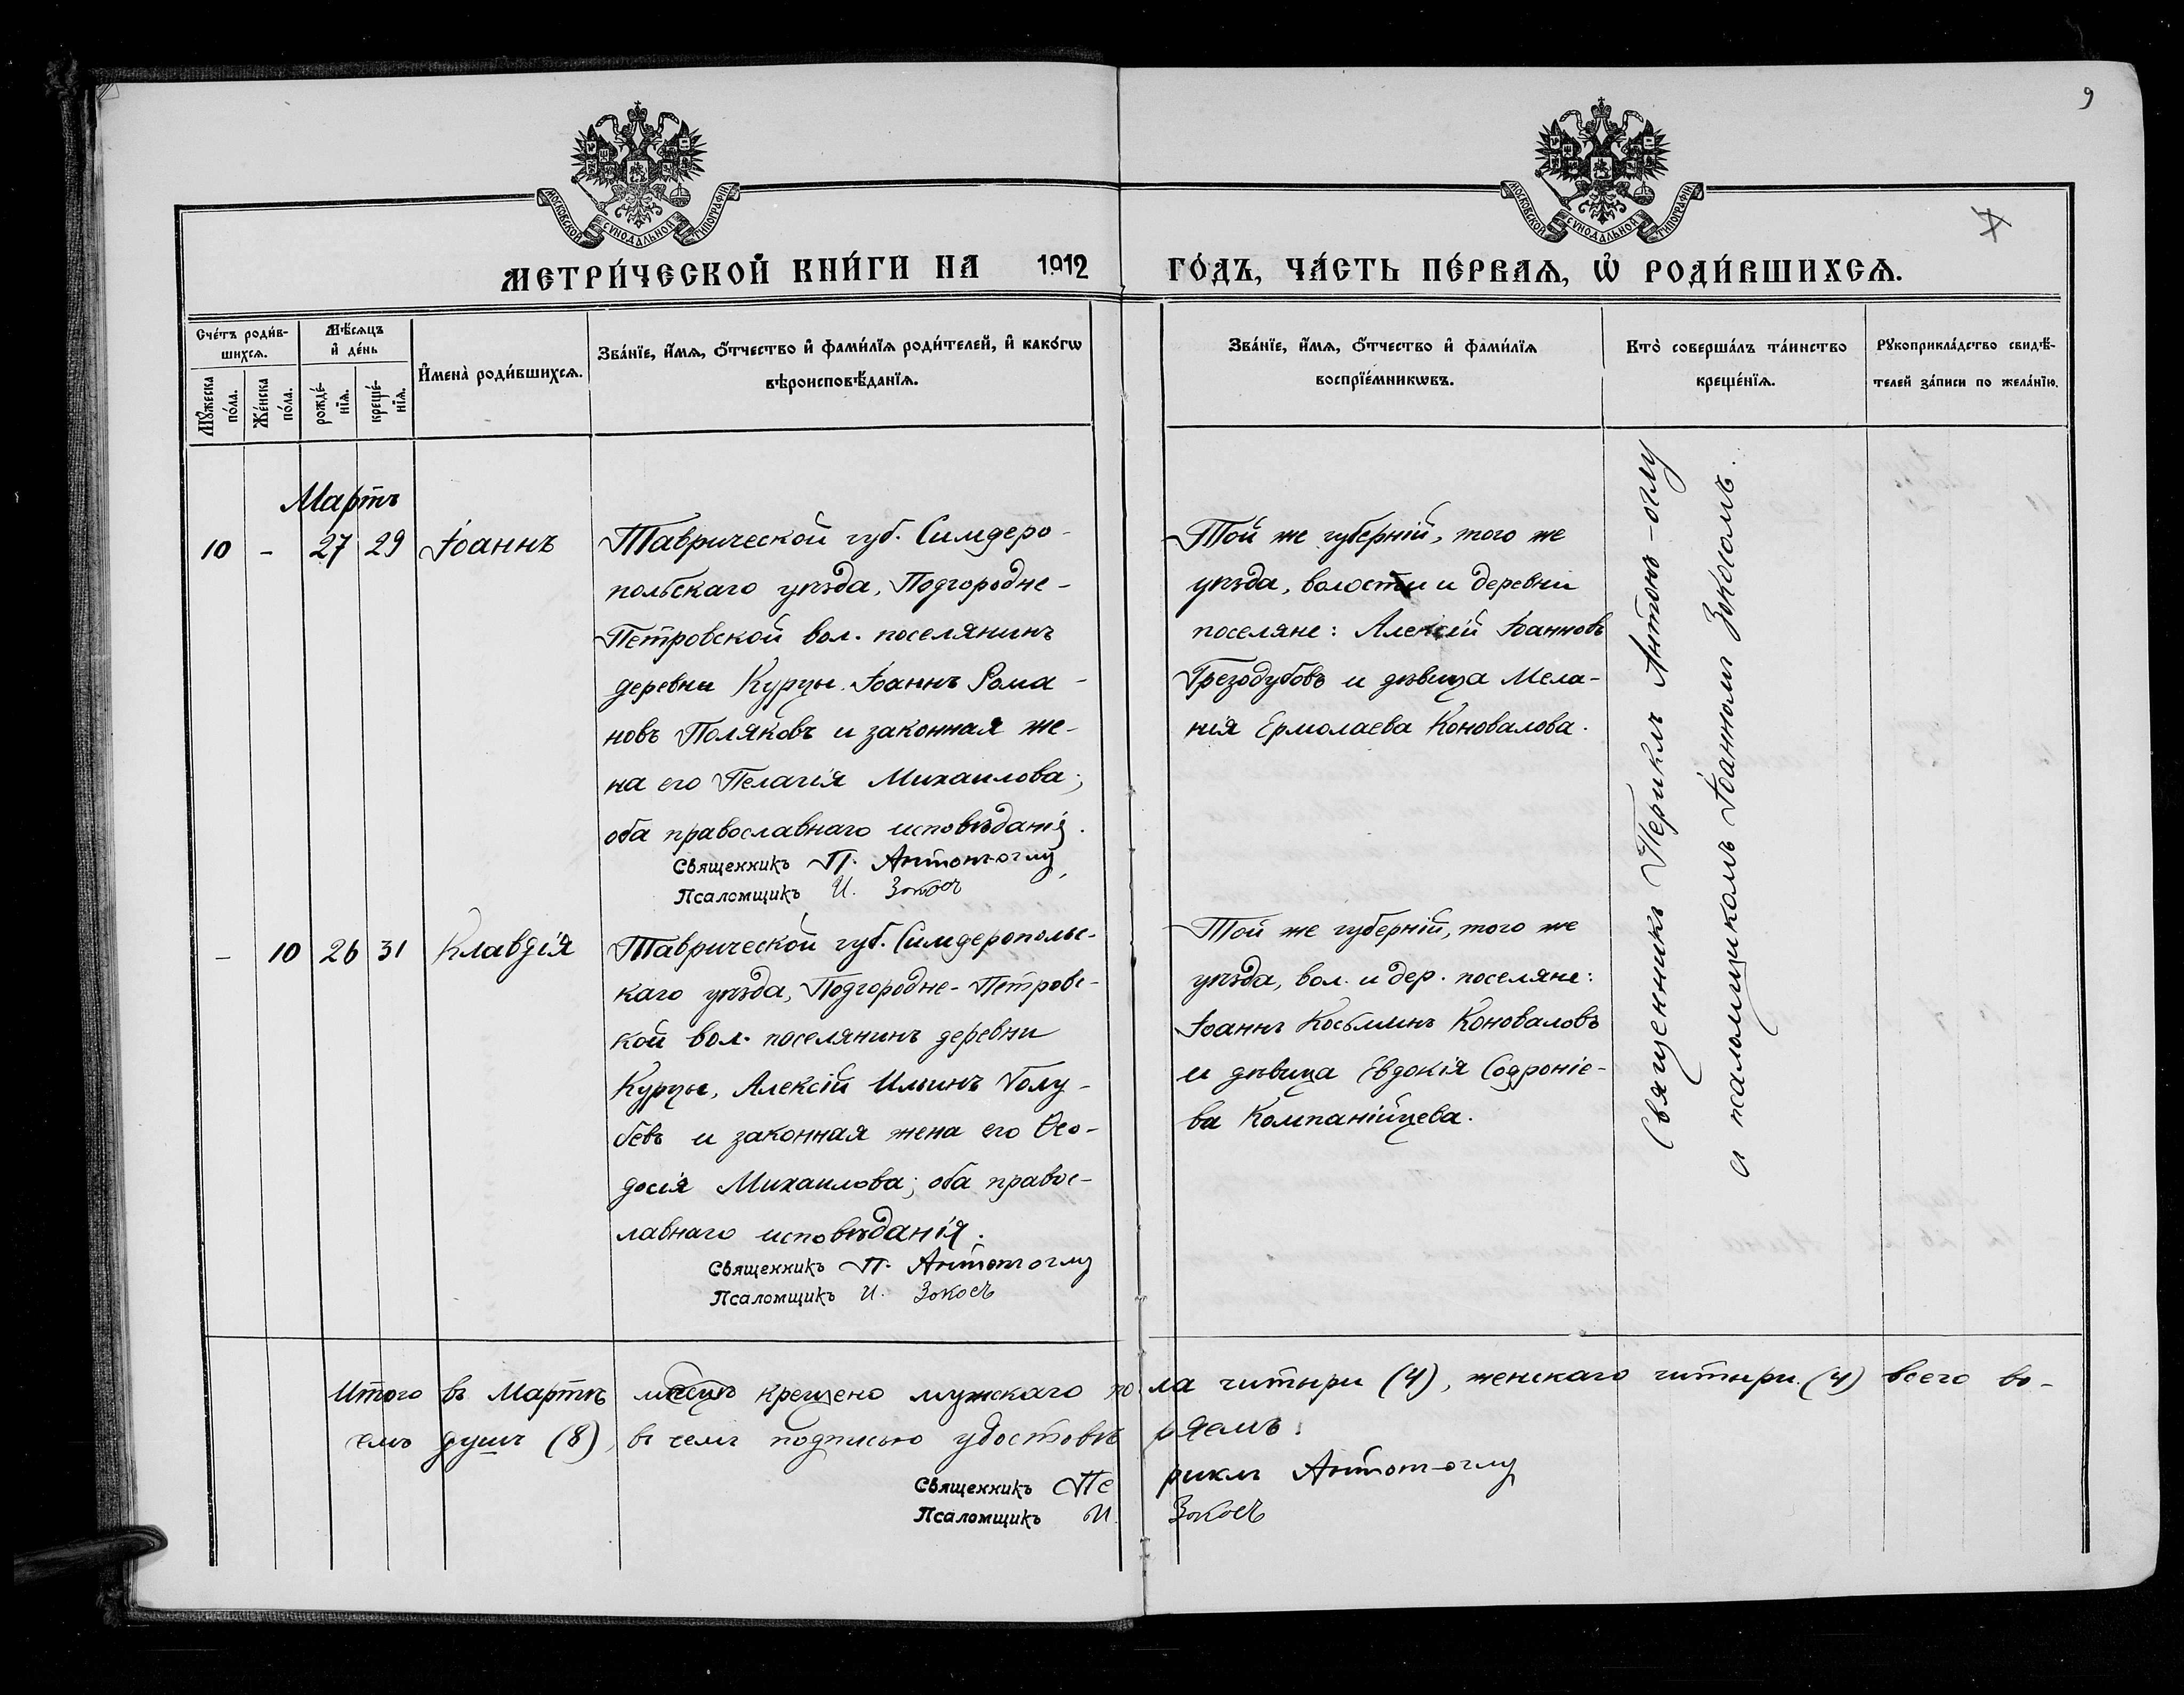 9
МОСКОВСКОЙ СѴНОДАЛЬНОЙ ТИПОГРАФІИ
МОСКОВСКОЙ СѴНОДАЛЬНОЙ ТИПОГРАФІИ
МЕТРИ́ЧЕСКОЙ КНИ́ГИ НА 1912 ГО́ДЪ, ЧА́СТЬ ПЕ́РВАѦ, Ѡ҆ РОДИ́ВШИХСѦ.
Сче́тъ роди́в-
шихсѧ.
Мꙋ́жеска
по́ла.
Же́нска
по́ла.
Мѣ́сѧцъ
и҆ де́нь
рожде́-
нїѧ.
креще́-
нїѧ.
И҆мена̀ роди́вшихсѧ.
Зва́нїе, и҆́мѧ, ѻ҆́тчество и҆ фами́лїѧ роди́телей, и҆ како́гѡ
вѣроисповѣ́данїѧ.
Зва́нїе, и҆́мѧ, ѻ҆́тчество и҆ фами́лїѧ
воспрїе́мникѡвъ.
Кто̀ соверша́лъ та́инство
креще́нїѧ.
Рꙋкоприкла́дство свидѣ́-
телей за́писи по жела́нїю.
Мартъ
10 - 27 29 Іоаннъ
Таврической губ. Симферо-
польскаго уѣзда, Подгородне-
Петровской вол. поселянинъ
деревни Курцы. Іоаннъ Рома-
новъ Поляковъ и законная же-
на его Пелагія Михаилова;
оба православнаго исповѣданія.
Священникъ П. Антонъ-оглу
Псаломщикъ И. Зокосъ
Той же губерній, того же
уѣзда, волости и деревни
поселяне: Алексій Іоанновъ
Грезодубовъ и дѣвица Мела-
нія Ермолаева Коновалова.
- 10 26 31 Клавдія
Таврической губ. Симферопольс-
каго уѣзда, Подгородне-Петровс-
кой вол. поселянинъ деревни
Курцы, Алексій Ильинъ Голу-
бевъ и законная жена его Ѳео-
досія Михаилова; оба правос-
лавнаго исповѣданія.
Священникъ П. Антонъ оглу
Псаломщикъ И. Зокосъ
Той же губерній, того же
уѣзда, вол. и дер. поселяне:
Іоаннъ Косьминъ Коноваловъ
и дѣвица Евдокія Софроніе-
ва Компанійцева.
Священникъ Периклъ Антонъ-оглу
и псаломщикомъ Іоанномъ Зокосомъ.
Итого въ Мартѣ мѣсяцѣ крещено мужскаго пола читыри (4), женскаго читыри (4) всего во-
семь душъ (8), въ чемъ подписью удостовѣряемъ:
Священникъ Периклъ Антонъ-оглу
Псаломщикъ И. Зокосъ